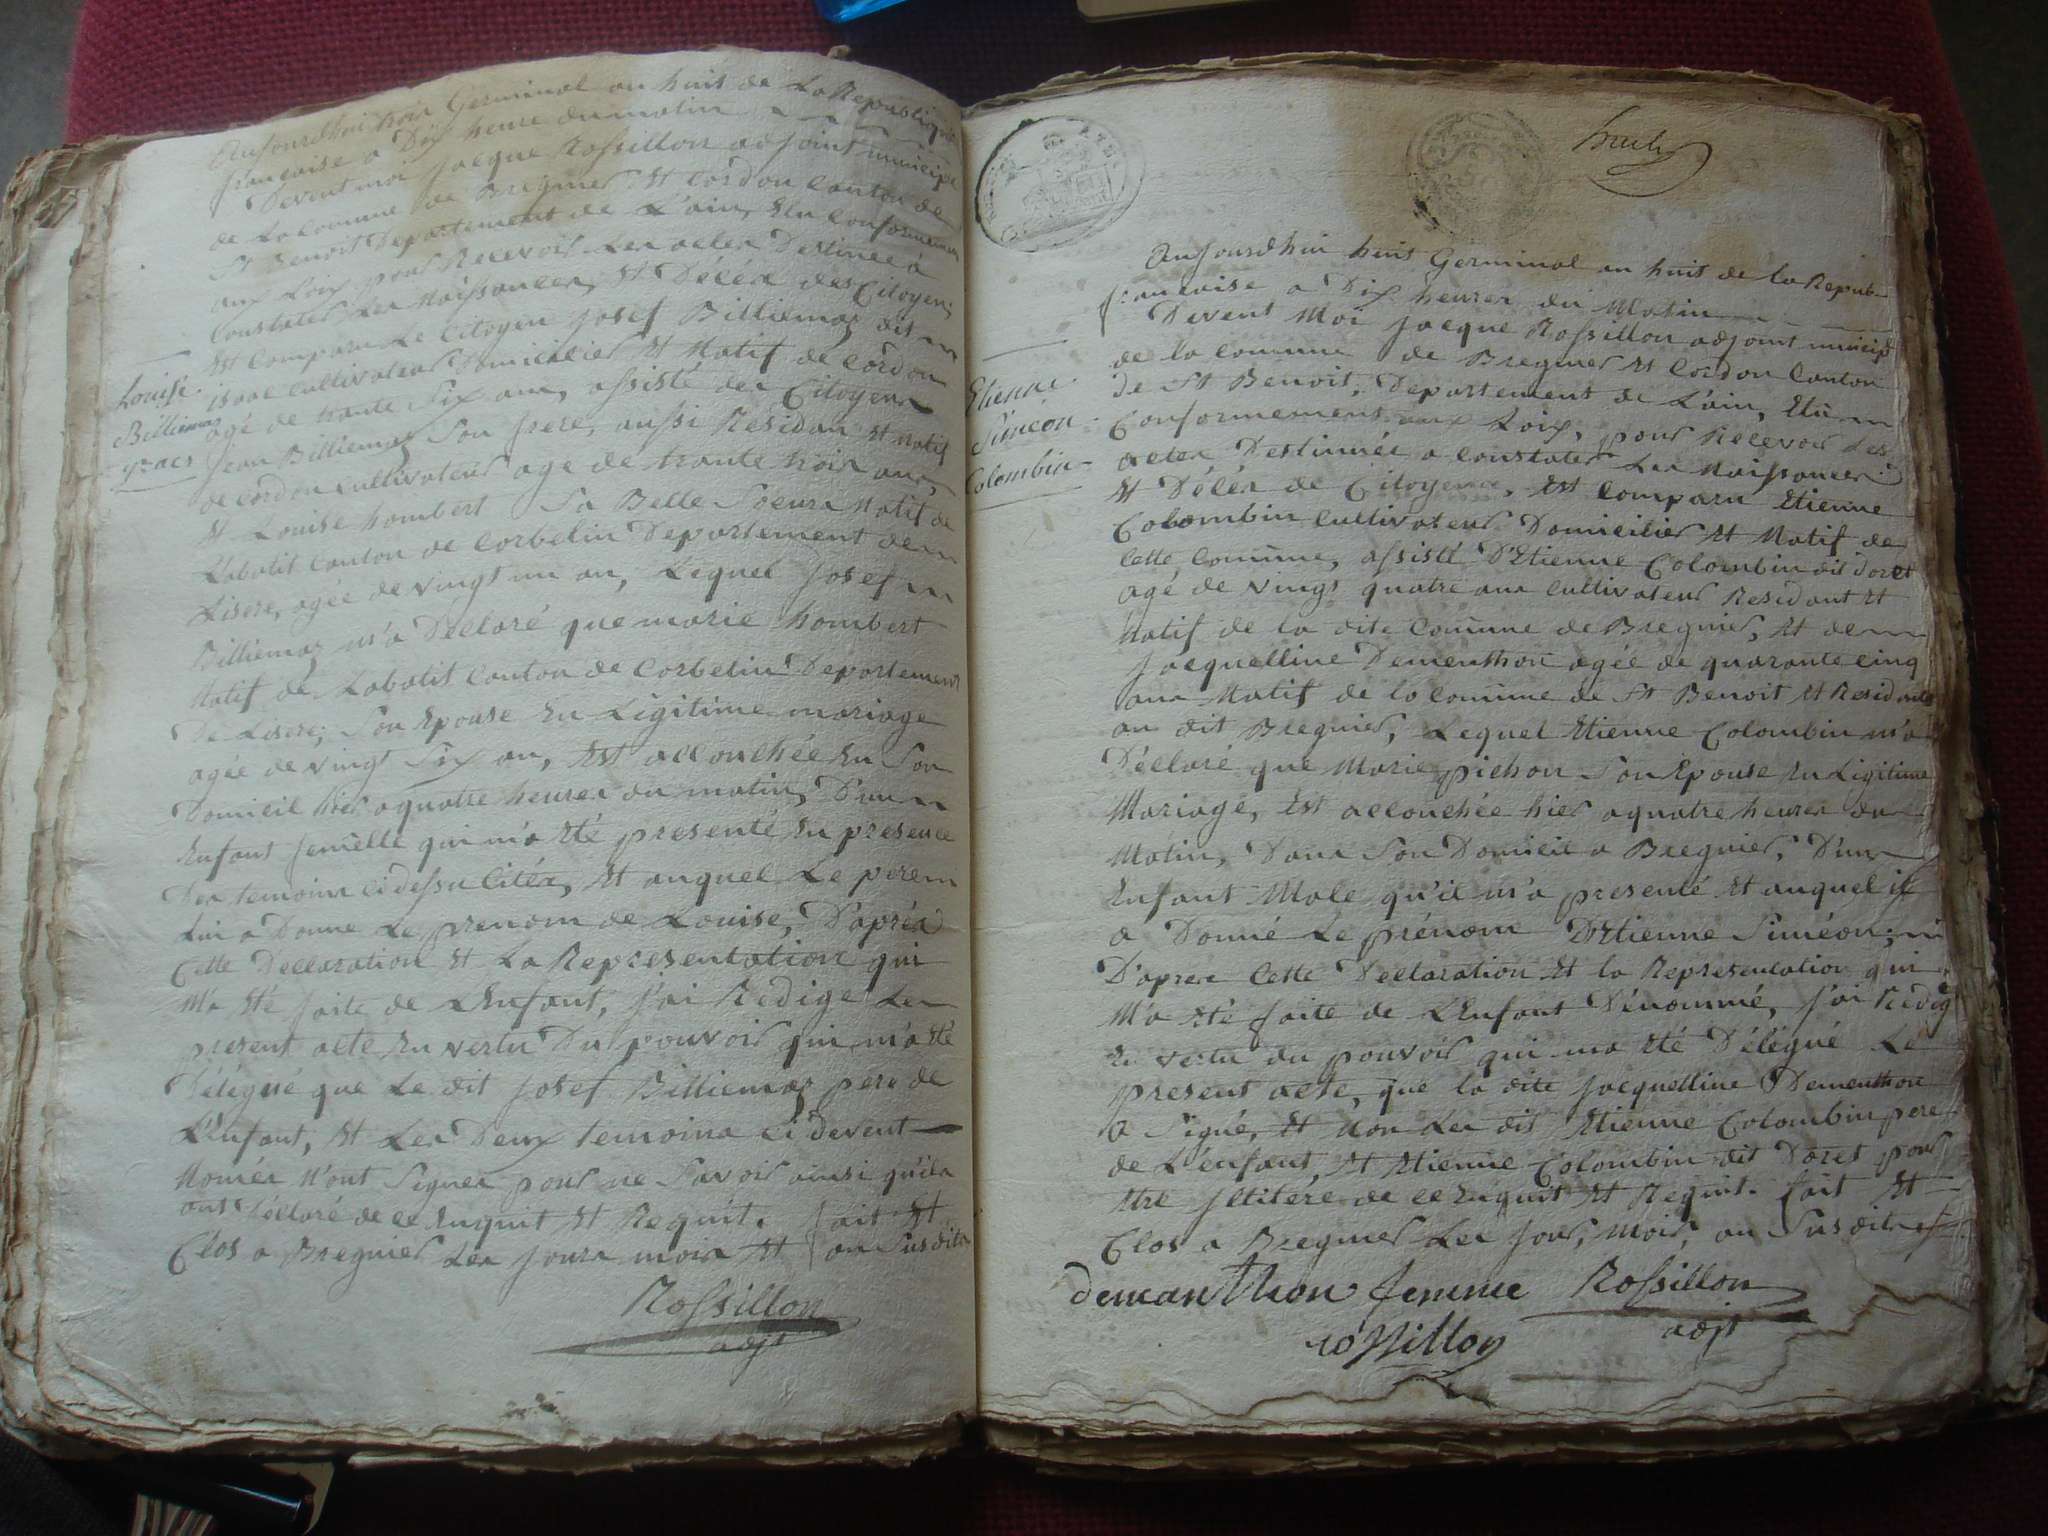 Aujourdhui trois Germinal an huit de La Republique
francaise a Dix heure du matin
Devent moi Jacque Rossillon adjoint municip
de La Comune de Bregnier Et Cordon Canton de
St Benoit Departement de L'ain, Elu Conformemen
aux Loix pour Recevoir Les actes Destinée à
Constater Les Naissances, Et Décés des Citoyens
Est Comparu Le Citoyen Josef Billiemaz dit
isaac Cultivateur Domicilier Et Natif de Cordon
agé de trante Six ans, assisté des Citoyens
Jean Billiemaz Son frere, aussi Residan Et natif
de Cordon Cultivateur age de trante trois ans,
Et Louise hombert Sa Belle Soeur Natif de
Labatit Canton de Corbelin Departement de
Lisere, agée de vingt un an, Lequel Josef
Billiemaz m'a Déclaré que marie hombert
Natif de Labatit Canton de Corbelin Departement
De Lisere, Son Epouse En Ligitime mariage
agée de vingt Six an, Est accouchée En Son
Domicil hier a quatre heures du matin, D'un
Enfant femelle qui m'a Eté presenté En presence
Des temoins ci dessu Cités, Et auquel Le pere
Lui a Donné Le prenom de Louise, D'aprés
Cette Declaration Et La Representation qui
M'a Eté faite de L'Enfant, J'ai Redigé Le
present acte En vertu Du pouvoir qui m'a Eté
Délégué que Le dit Josef Billiemaz pere de
L'Enfant, Et Les Deux temoins Ci devent
Només N'ont Signer pour ne Savoir ainsi qu'ils
ont Déclaré de ce Enquit Et Requit. fait Et
Clos a Bregnier Les Jours mois Et an Susdits
Rossillon
adjt
Louise
Billiemaz
Isaac
huit
Aujourdhui huit Germinal an huit de la Repub
francaise a Dix heures du Matin
Devent Moi Jacque Rossillon adjoint municip
de la Commune de Bregnier Et Cordon Canton
de St Benoit, Departement de L'ain, Elu
Conformement aux Loix, pour Recevoir Les
actes Destinnée a Constater Les Naissances
Et Décés de Citoyens, Est Comparu Etienne
Colombin Cultivateur Domicilier Et Natif de
Cette Comune, assisté D'Etienne Colombin dit Doret
agé de vingt quatre ans Cultivateur Residant Et
Natif de la dite Comune de Bregnier, Et de
Jacquelline Dementhon agée de quarante cinq
ans Natif de la Comune de St Benoit Et Residante
au dit Bregnier, Lequel Etienne Colombin m'a
Déclaré que Marie pichon Son Epouse En Ligitime
Mariage, Est accouchée hier a quatre heures du
Matin, Dans Son Domicil a Bregnier, D'un
Enfant Male qu'il m'a presenté Et auquel il
a Donné Le prénom D'Etienne Siméon,
D'apres Cette Declaration Et la Representation qui
M'a Eté faite de L'Enfant Dénommé, J'ai Redigé
En vertu du pouvoir qui ma Eté Délégué Le
present acte, que la dite Jacquelline Dementhon
a Signé, Et Non Les dit Etienne Colombin pere
de L'enfant, Et Etienne Colombin dit Doret pour
Etre Illitéré de ce Enquit Et Requit. fait Et
Clos a Bregnier Les Jour, Mois, an Susdits
demanthon femme Rossillon
rossillon adjt
Etienne
Siméon
Colombin